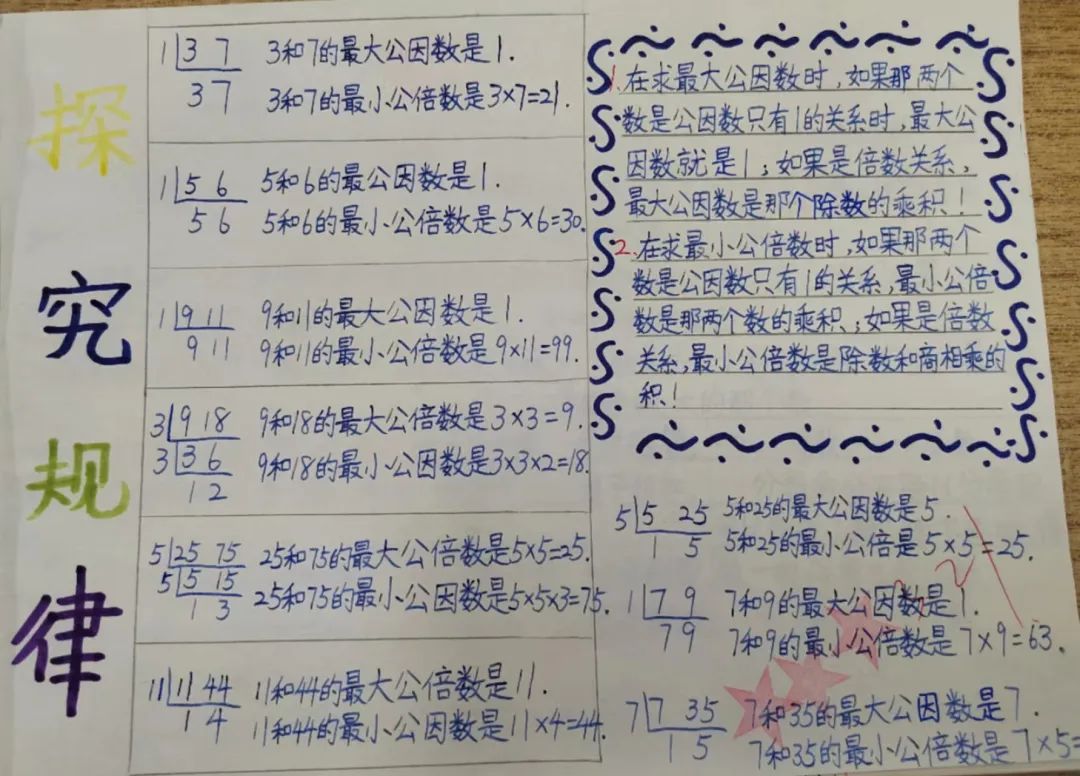 探究规律
1 3 7 3和7的最大公因数是1.
3 7 3和7的最小公倍数是3×7=21.
1 5 6 5和6的最公因数是1.
5 6 5和6的最小公倍数是5×6=30.
1 9 11 9和11的最大公因数是1.
9 11 9和11的最小公倍数是9×11=99.
3 9 18 9和18的最大公倍数是3×3=9.
3 3 6 9和18的最小公因数是3×3×2=18.
1 2
5 25 75 25和75的最大公倍数是5×5=25.
5 5 15 25和75的最小公因数是5×5×3=75.
1 3
11 11 44 11和44的最大公倍数是11.
1 4 11和44的最小公因数是11×4=44.
1.在求最大公因数时,如果那两个
数是公因数只有1的关系时,最大公
因数就是1;如果是倍数关系,
最大公因数是那个除数的乘积!
2.在求最小公倍数时,如果那两个
数是公因数只有1的关系,最小公倍
数是那两个数的乘积;如果是倍数
关系,最小公倍数是除数和商相乘的
积!
5 5 25 5和25的最大公因数是5.
1 5 5和25的最小公倍是5×5=25.
1 7 9 7和9的最大公因数是1.
7 9 7和9的最小公倍数是7×9=63.
7 7 35 7和35的最大公因数是7.
1 5 7和35的最小公倍数是7×5=